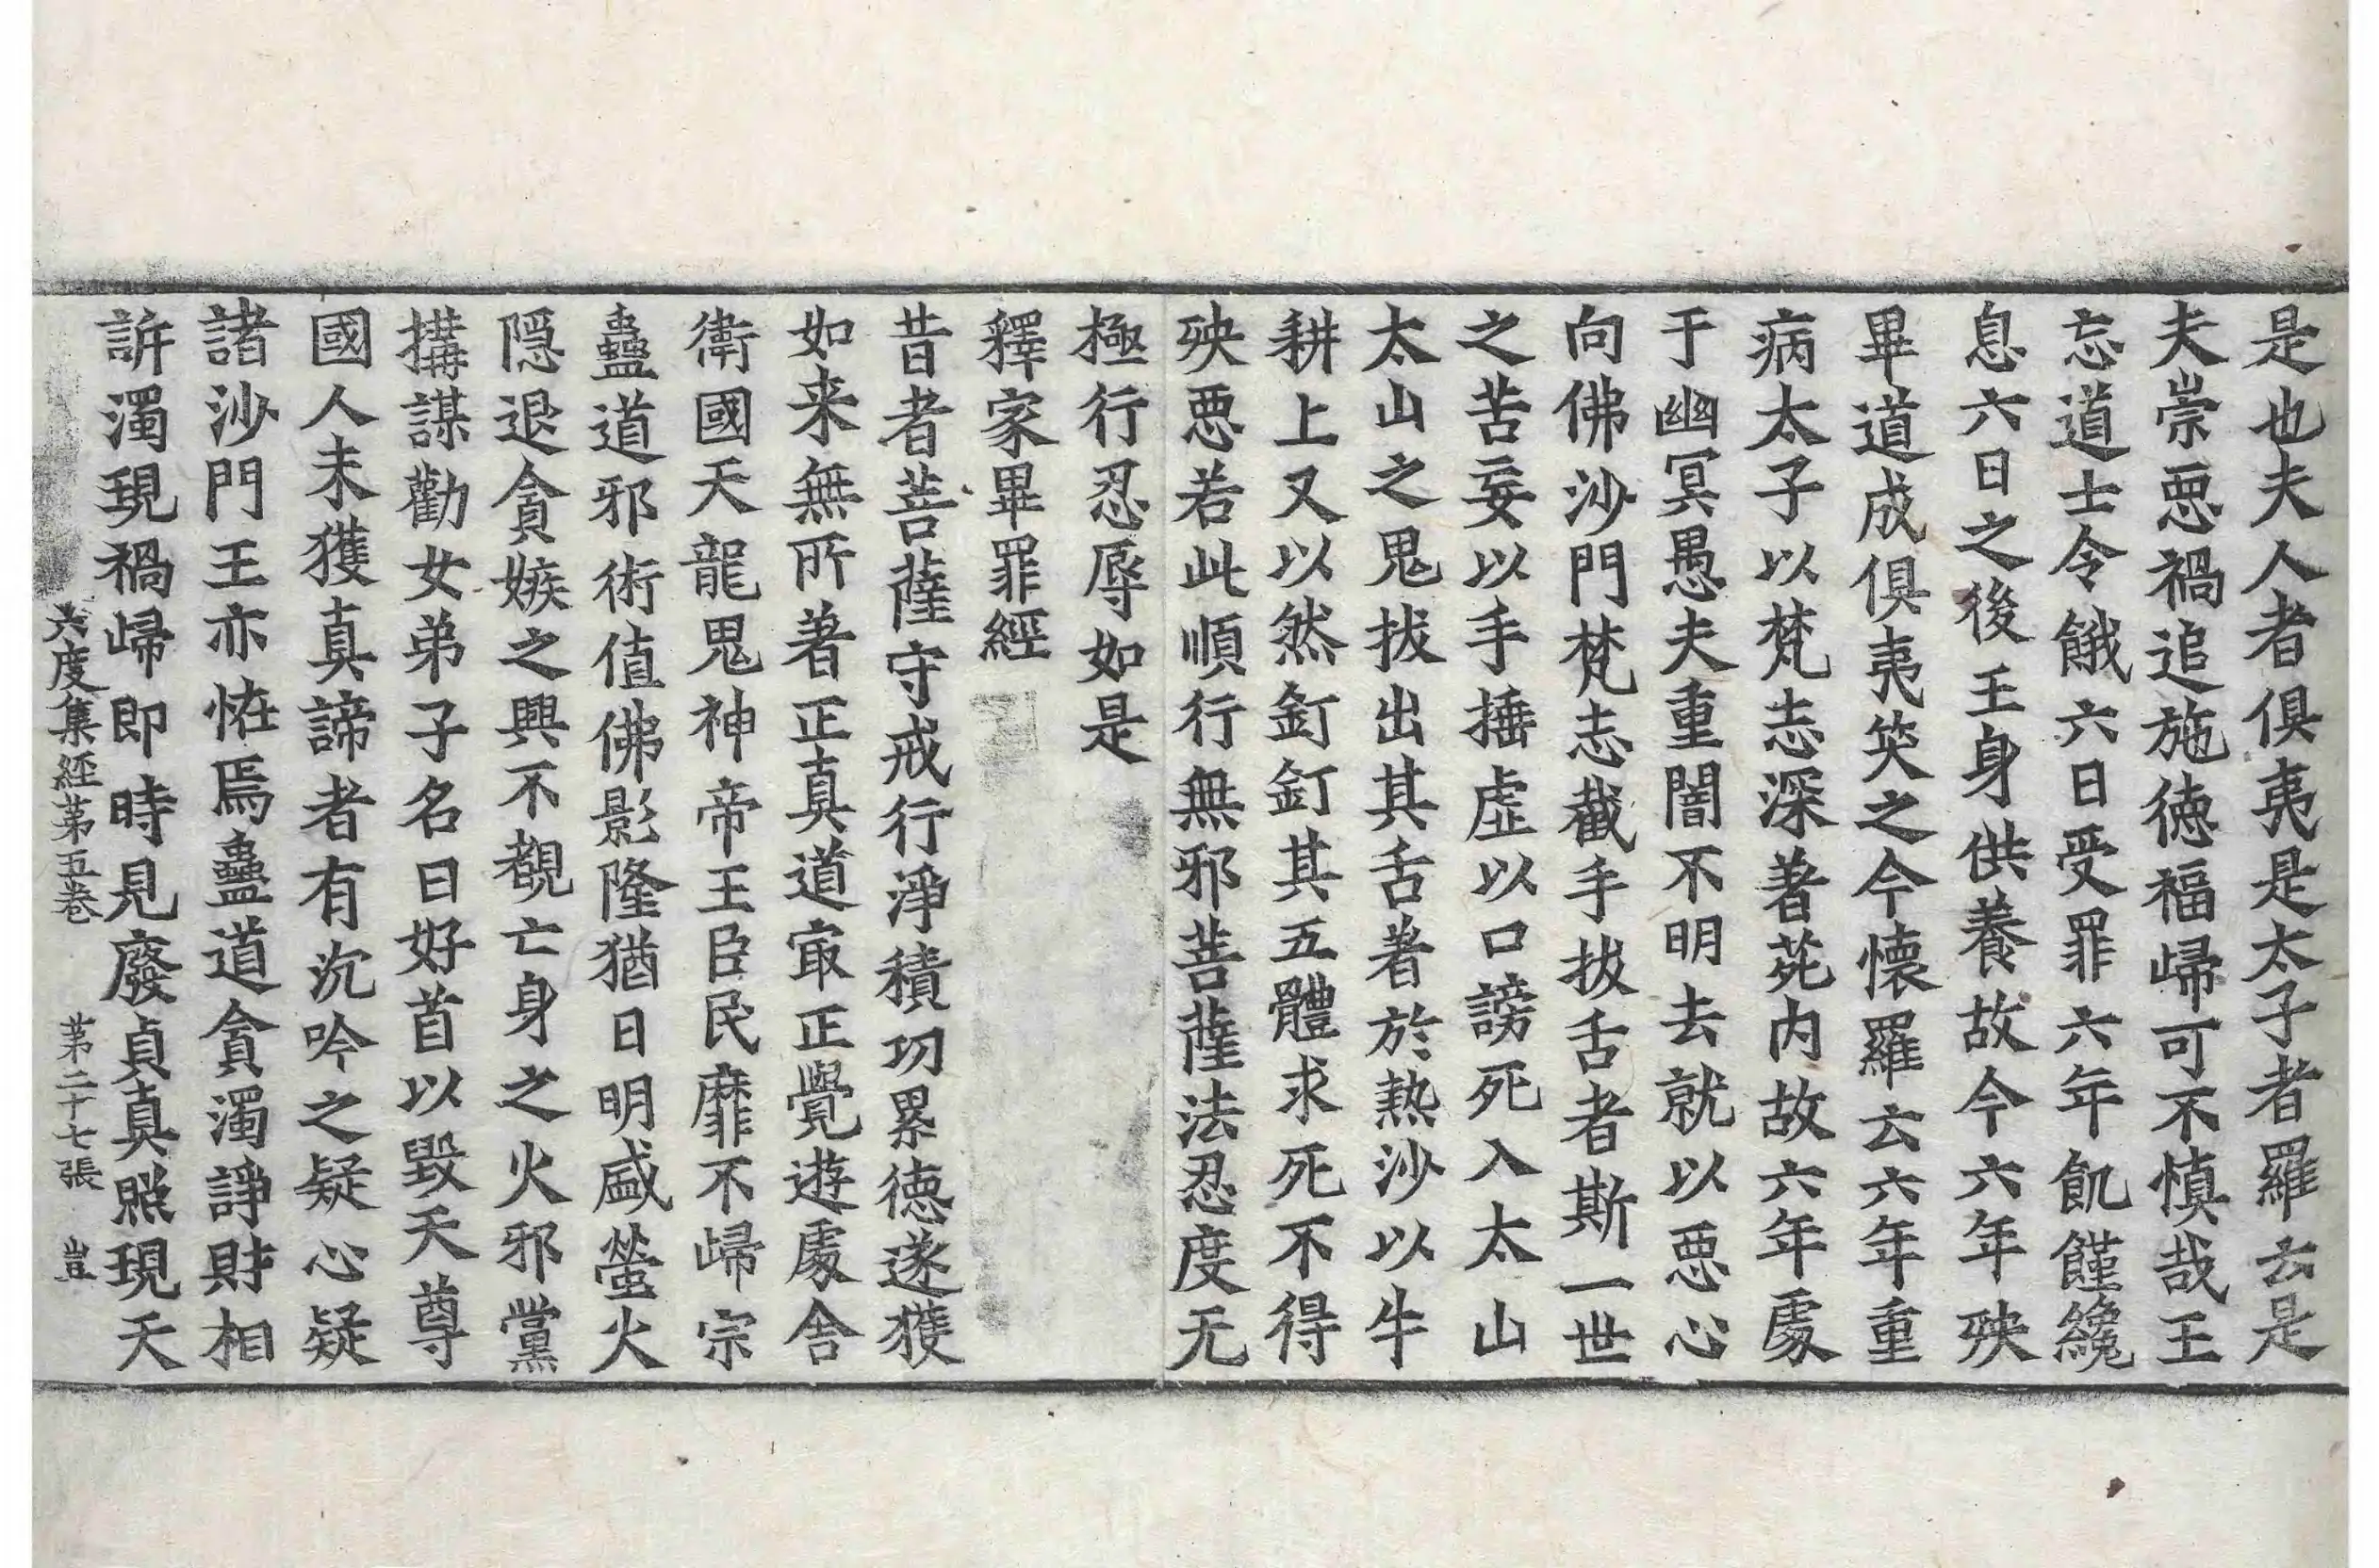 是也夫人者俱夷是太子者羅云是
夫崇惡禍追施德福歸可不慎哉王
忘道士令餓六日受罪六年飢饉纔
息六日之後王身供養故今六年殃
畢道成俱夷笑之今懷羅云六年重
病太子以梵志深著菀内故六年處
于幽冥愚夫重闇不明去就以惡心
向佛沙門梵志截手拔舌者斯一世
之苦妄以手捶虛以口謗死入太山
太山之鬼拔出其舌著於熱沙以牛
耕上又以然釘釘其五體求死不得
殃惡若此順行無邪菩薩法忍度无
極行忍辱如是
釋家畢罪經
昔者菩薩守戒行淨積功累德遂獲
如来無所著正真道㝡正覺遊處舍
衛國天龍鬼神帝王臣民靡不歸宗
蠱道邪術值佛影隆猶日明盛螢火
隱退貪嫉之興不覩亡身之火邪黨
搆謀勸女弟子名曰好首以毀天尊
國人未獲真諦者有沉吟之疑心疑
諸沙門王亦恠焉蠱道貪濁諍財相
訴濁現禍歸即時見廢貞真照現天
六度集經第五卷 第二十七張 豈